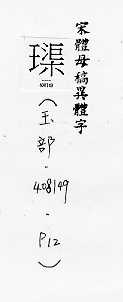 宋體母稿異體字
璖
(玉部-408149-P12)